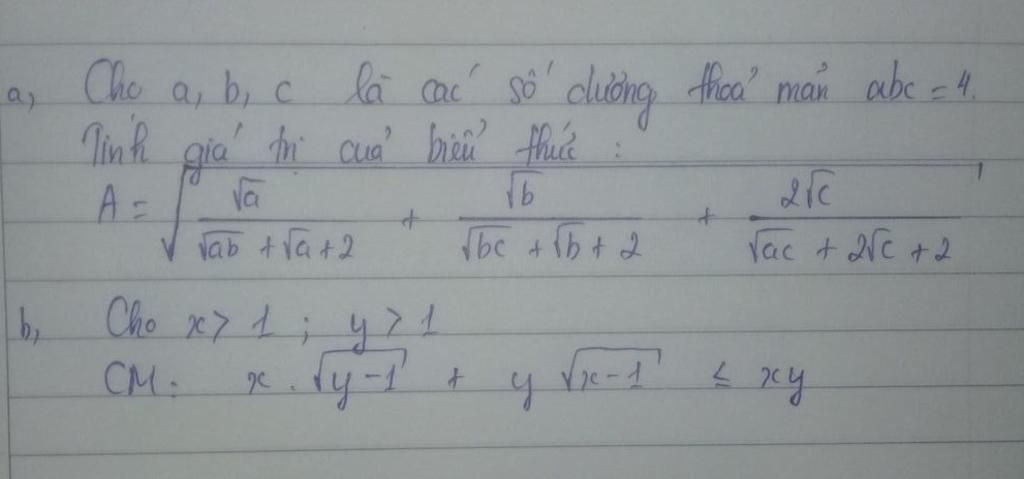 a, Cho a, b, c là các số dương thoả mãn abc = 4.
Tính giá trị của biểu thức :
A = √(√a/(√ab + √a + 2) + √b/(√bc + √b + 2) + 2√c/(√ac + 2√c + 2))
b, Cho x > 1 ; y > 1
CM: x . √(y-1) + y √(x-1) ≤ xy